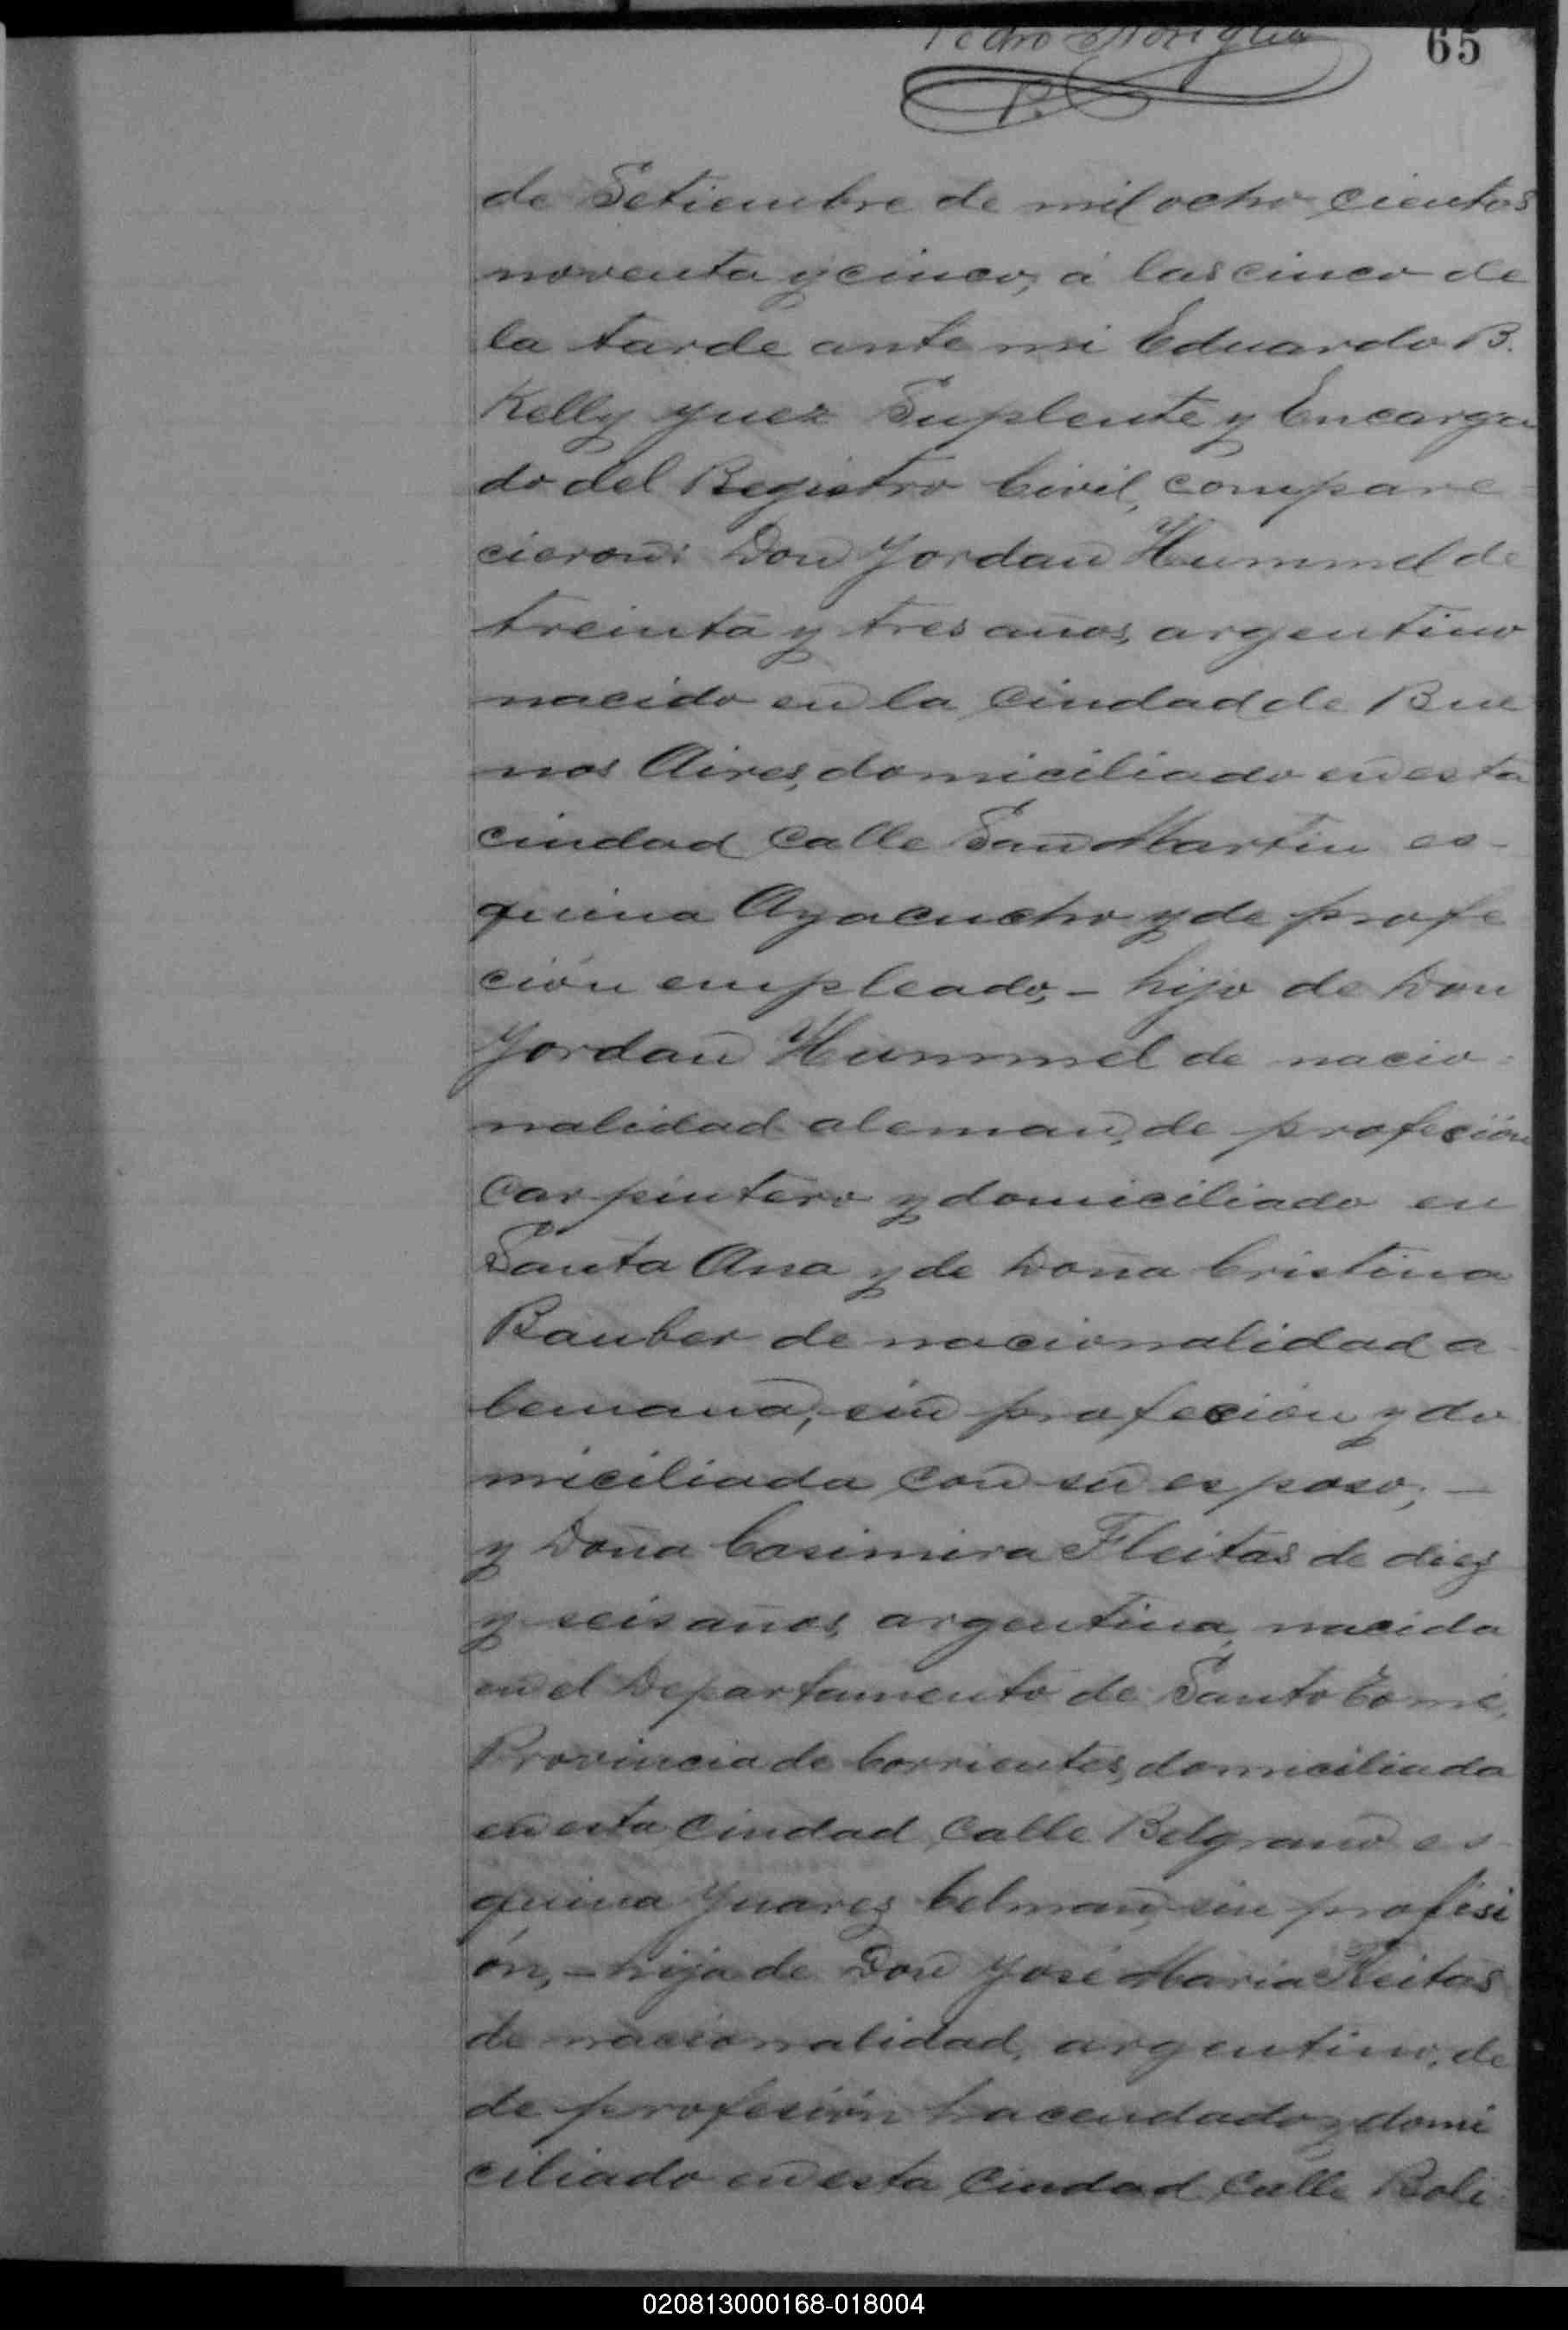 Pedro
65
de Setiembre de mil ocho cientos
noventa y cinco, á las cinco de
la tarde ante mi Eduardo B.
Kelly Juez Suplente y Encarga
do del Registro Civil, compare-
cieron: Don Jordan Hummel de
treinta y tres años, argentino
nacido en la Ciudad de Bue
nos Aires, domiciliado en esta
ciudad Calle San Martin es-
quina Ayacucho y de profe
ción empleado, - hijo de Don
Jordan Hummel de nacio-
nalidad aleman, de profeción
Carpintero y domiciliado en
Santa Ana y de Doña Cristina
Bauber de nacionalidad a
lemana, sin profeción y do
miciliada con su esposo; -
y Doña Casimira Fleitas de diez
y seis años, argentina, nacida
en el Departamento de Santo Tomé,
Provincia de Corrientes, domiciliada
en esta Ciudad Calle Belgrano es-
quina Juarez Celman, sin profesi
ón, - hija de Don José Maria Fleitas
de nacionalidad, argentino, de
de profesión hacendado y domi
ciliado en esta Ciudad Calle Boli-
020813000168-018004